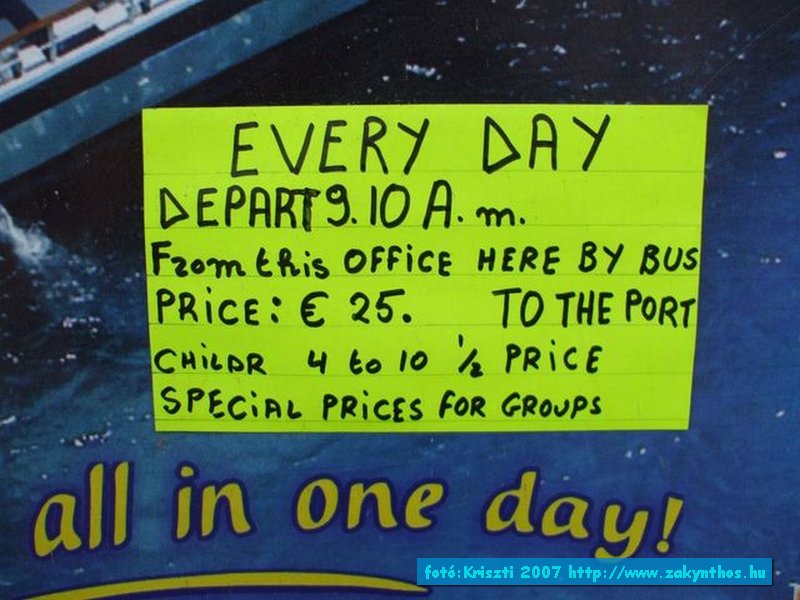 EVERY DAY
DEPART 9.10 A.m.
From this OFFICE HERE BY BUS
PRiCE: € 25. TO THE PORT
CHiLDR 4 to 10 1/2 PRiCE
SPECiAL PRiCES FOR GROUPS
all in one day!
fotó:Kriszti 2007 http://www.zakynthos.hu